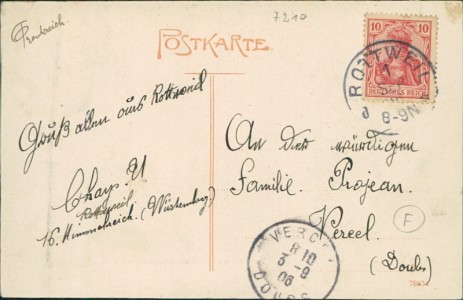 Frankreich.
7210
POSTKARTE.
10
DEUTSCHES REICH
ROTTWEIL
1
8-9N
Gruß allen aus Rottweil
Chay. U
Rottweil
16. Himmelreich. (Württemberg)
An die würdigen
Familie Projean.
Vercel.
(Doubs)
F
VERCEL
8 10
3 -9
06
DOUBS